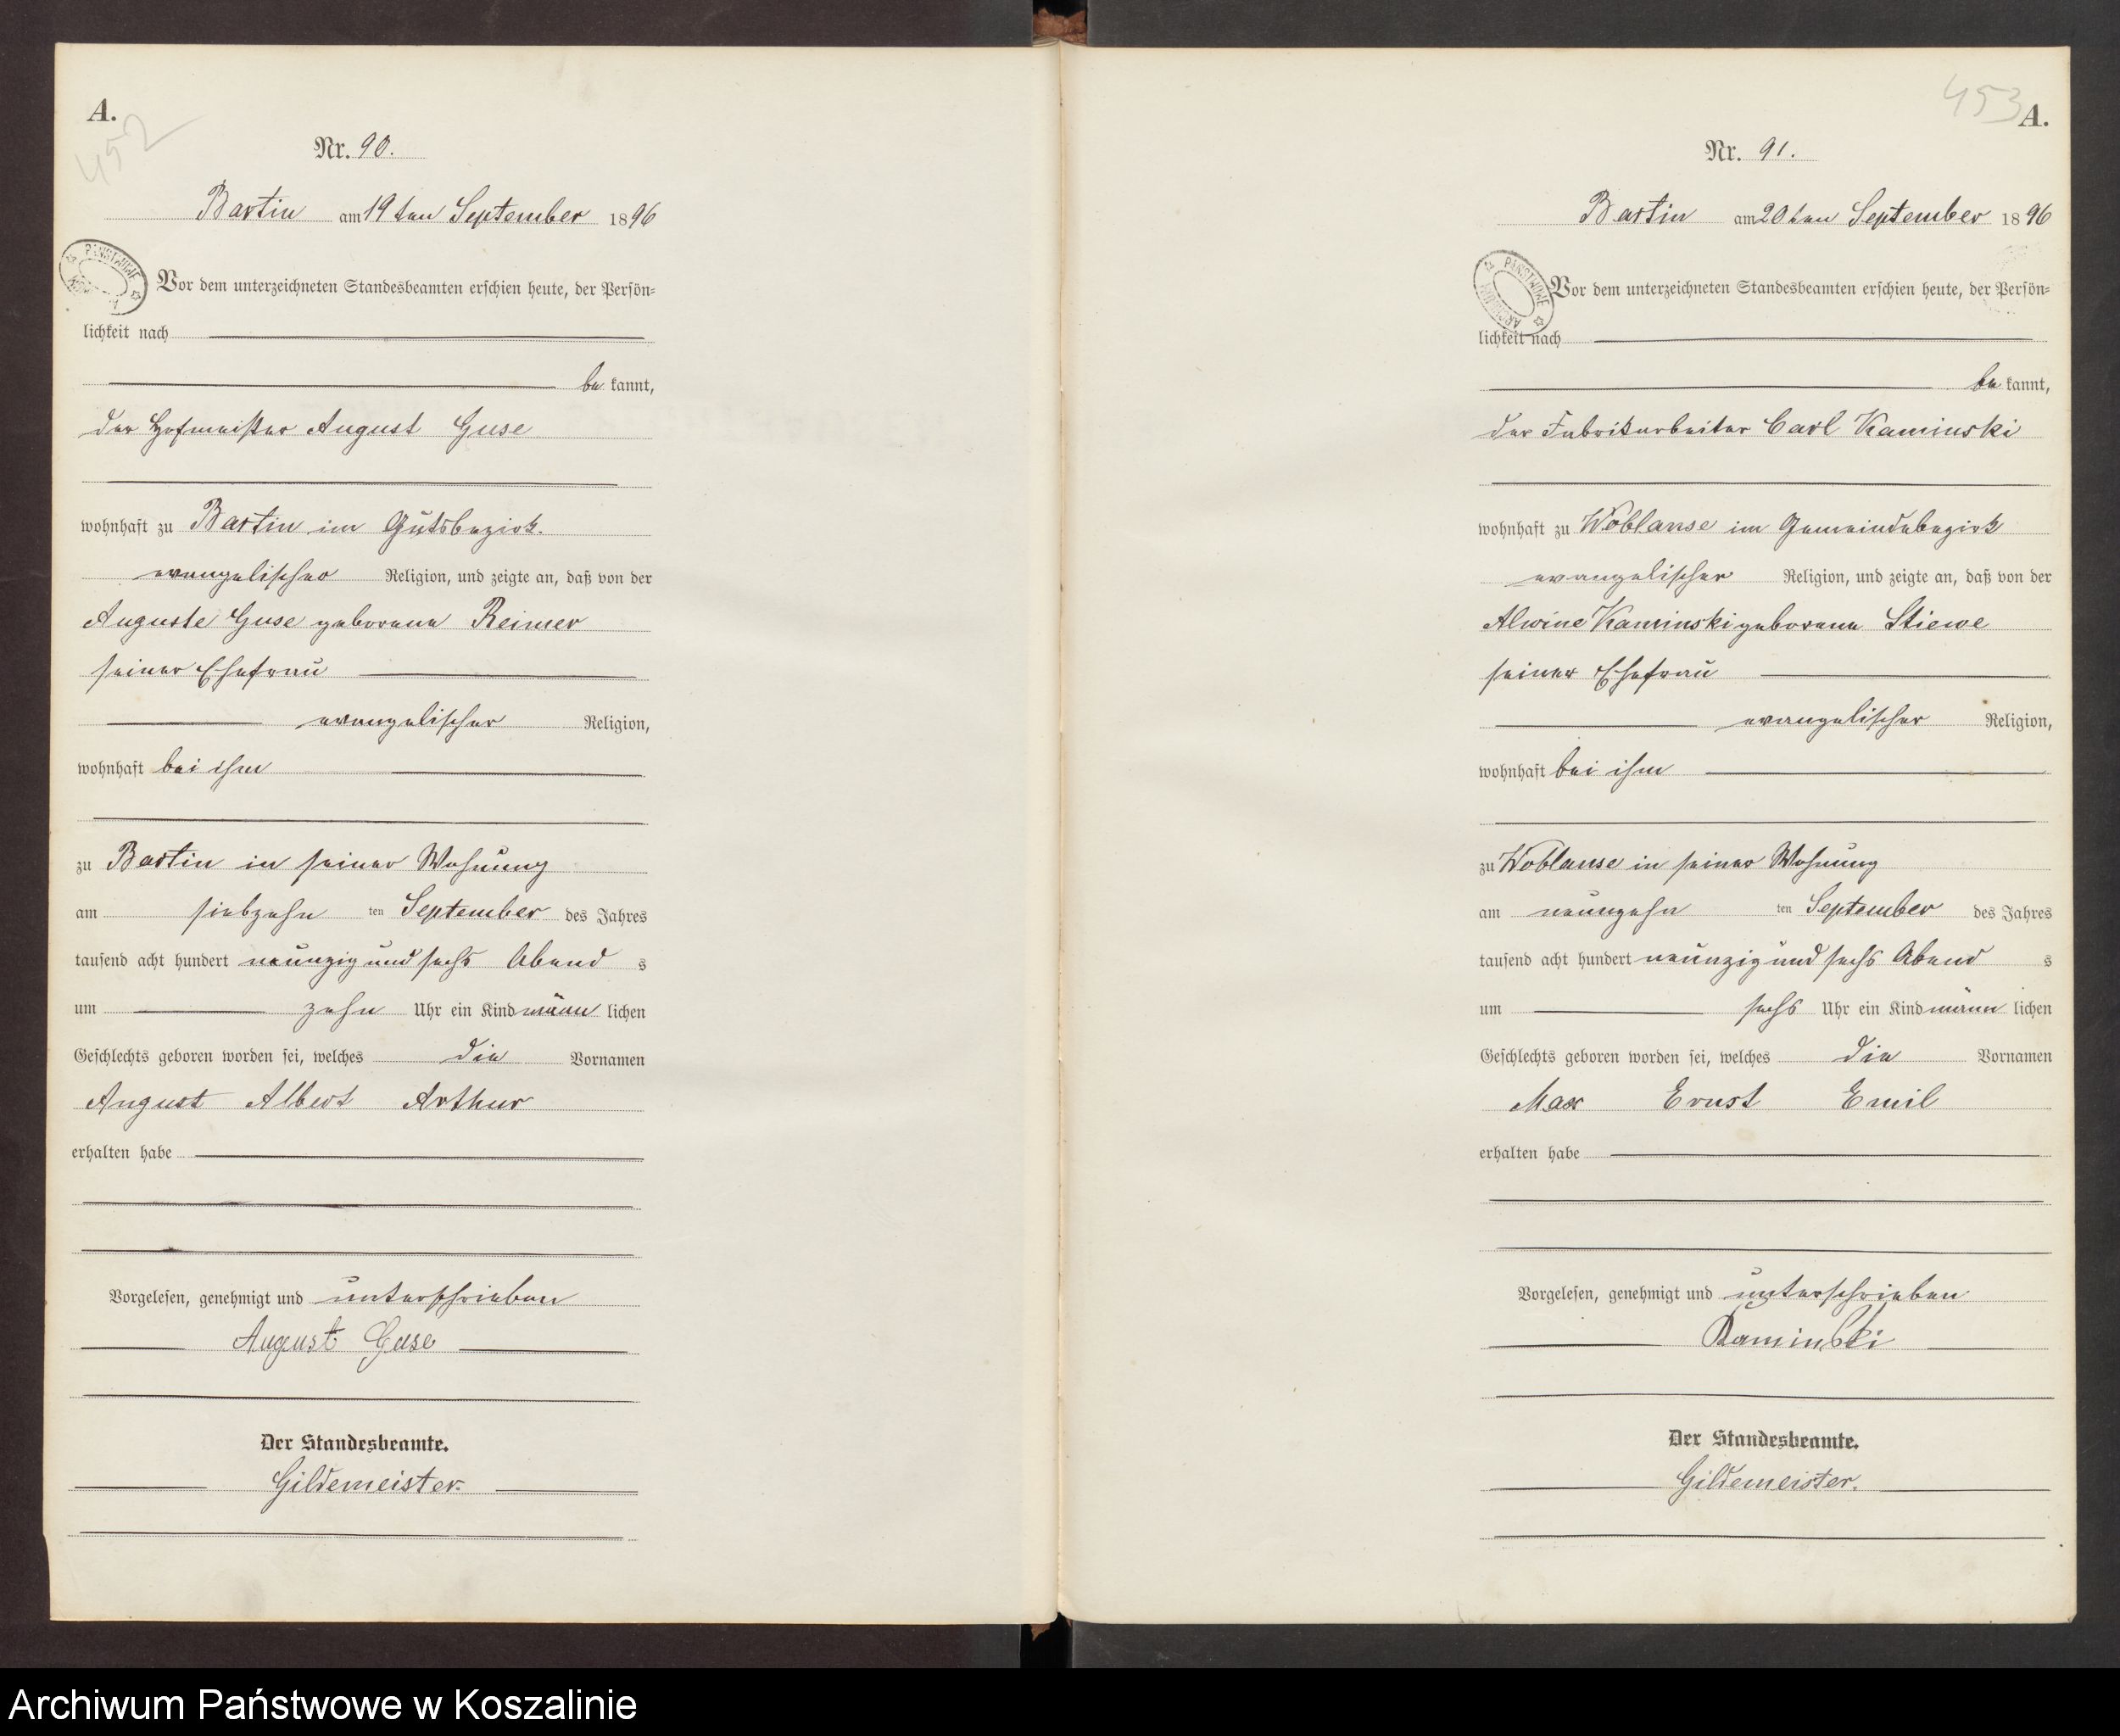 A.
452
Nr. 90.
Bartin am 19ten September 1896
PAŃSTWOWE
Vor dem unterzeichneten Standesbeamten erschien heute, der Persön=
lichkeit nach
be kannt,
der Hofmeister August Guse
wohnhaft zu Bartin im Gutsbezirk.
evangelischer Religion, und zeigte an, daß von der
Auguste Guse geborene Reimer
seiner Ehefrau
evangelischer Religion,
wohnhaft bei ihm
zu Bartin in seiner Wohnung
am siebzehn ten September des Jahres
tausend acht hundert neunzig und sechs Abend s
um zehn Uhr ein Kind männ lichen
Geschlechts geboren worden sei, welches die Vornamen
August Albert Arthur
erhalten habe
Vorgelesen, genehmigt und unterschrieben
August Guse
Der Standesbeamte.
Gildemeister.
453
A.
Nr. 91.
Bartin am 20ten September 1896
PAŃSTWOWE ARCHIWUM
Vor dem unterzeichneten Standesbeamten erschien heute, der Persön=
lichkeit nach
be kannt,
der Fabrikarbeiter Carl Kaminski
wohnhaft zu Woblanse im Gemeindebezirk
evangelischer Religion, und zeigte an, daß von der
Alwine Kaminski geborene Stiewe
seiner Ehefrau
evangelischer Religion,
wohnhaft bei ihm
zu Woblanse in seiner Wohnung
am neunzehn ten September des Jahres
tausend acht hundert neunzig und sechs Abend s
um sechs Uhr ein Kind männ lichen
Geschlechts geboren worden sei, welches die Vornamen
Max Ernst Emil
erhalten habe
Vorgelesen, genehmigt und unterschrieben
Kaminski
Der Standesbeamte.
Gildemeister.
Archiwum Państwowe w Koszalinie